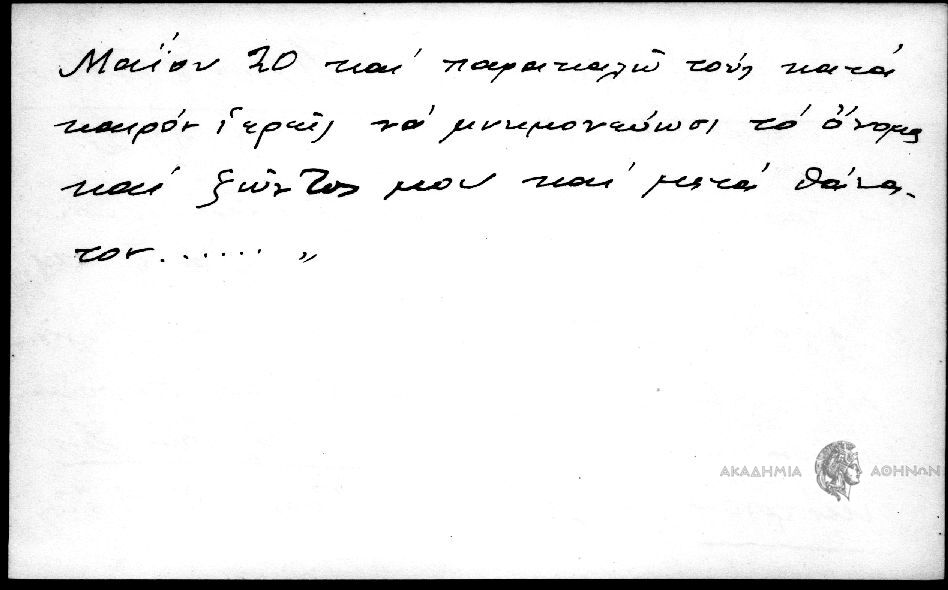 Μαΐου 20 καί παρακαλῶ τούς κατά
καιρόν ἱερεῖς νά μνημονεύωσι τό ὄνομα
καί ζῶντος μου καί μετά θάνα-
τον....... „
ΑΚΑΔΗΜΙΑ ΑΘΗΝΩΝ